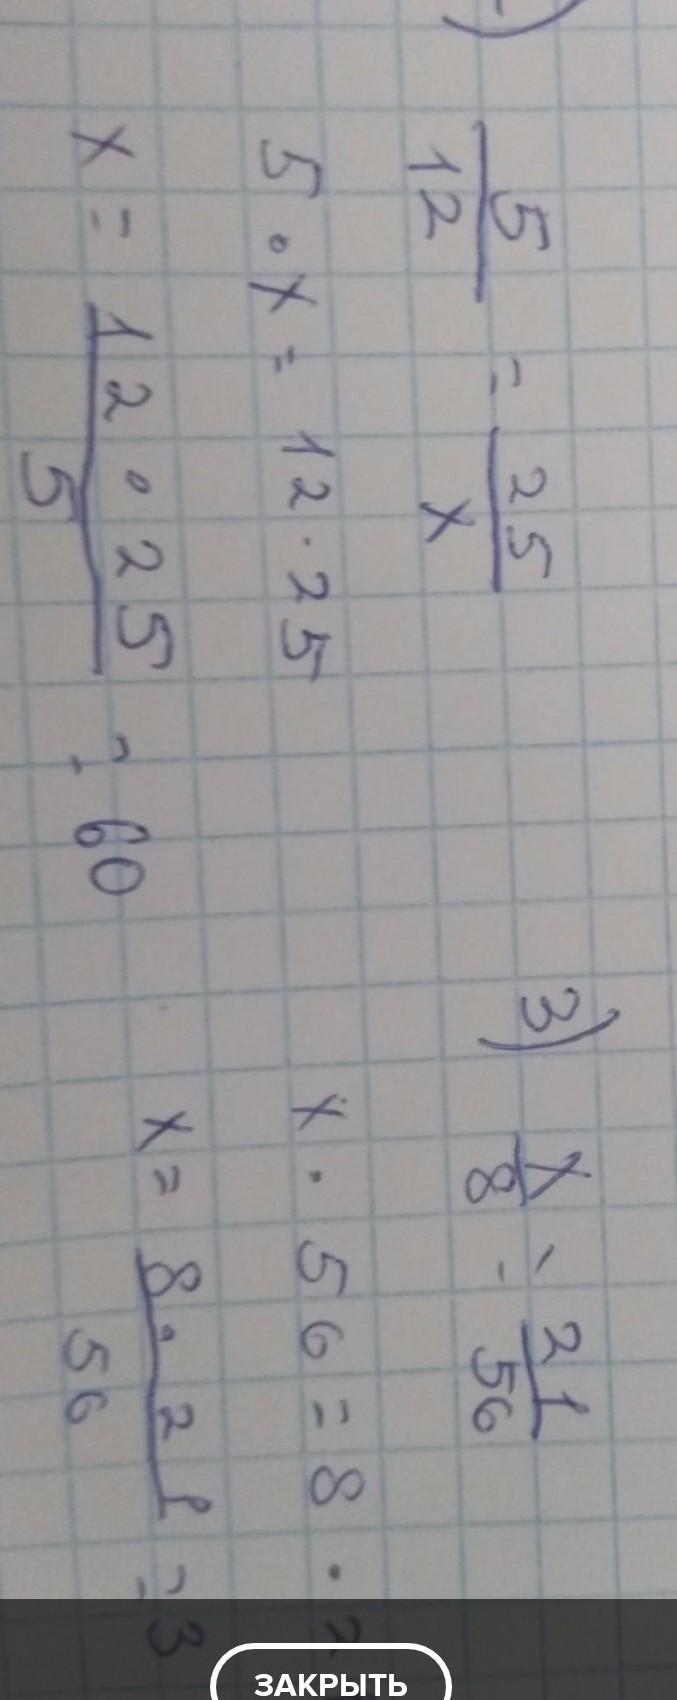 5/12 = 25/x
5 · x = 12 · 25
x = 12 · 25/5 = 60
3) x/8 = 21/56
x · 56 = 8 ·
x = 8 · 21/56 = 3
ЗАКРЫТЬ